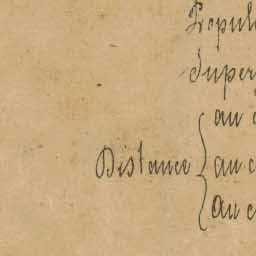 Popul
Super
au c
Distance { au c
au c